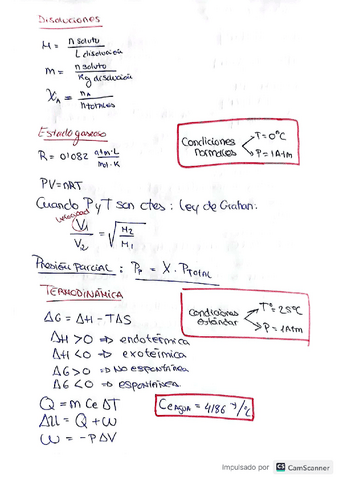 Disoluciones
M = n soluto / L disolución
m = n soluto / Kg disolución
χA = nA / n totales
Estado gaseoso
R = 0'082 atm·L / mol·K
Condiciones normales → T = 0°C
→ P = 1 Atm
PV = nRT
Cuando P y T son ctes : Ley de Graham:
velocidad
V1 / V2 = √ M2 / M1
Presión parcial : Pp = X · PTotal
TERMODINÁMICA
Condiciones estándar → Tª = 25°C
→ P = 1 Atm
ΔG = ΔH - TΔS
ΔH > 0 ⇒ endotérmica
ΔH < 0 ⇒ exotérmica
ΔG > 0 ⇒ No espontánea
ΔG < 0 ⇒ espontánea
Q = m Ce ΔT
Ce AGUA = 4186 J/°C
ΔU = Q + W
W = - P ΔV
Impulsado por CS CamScanner